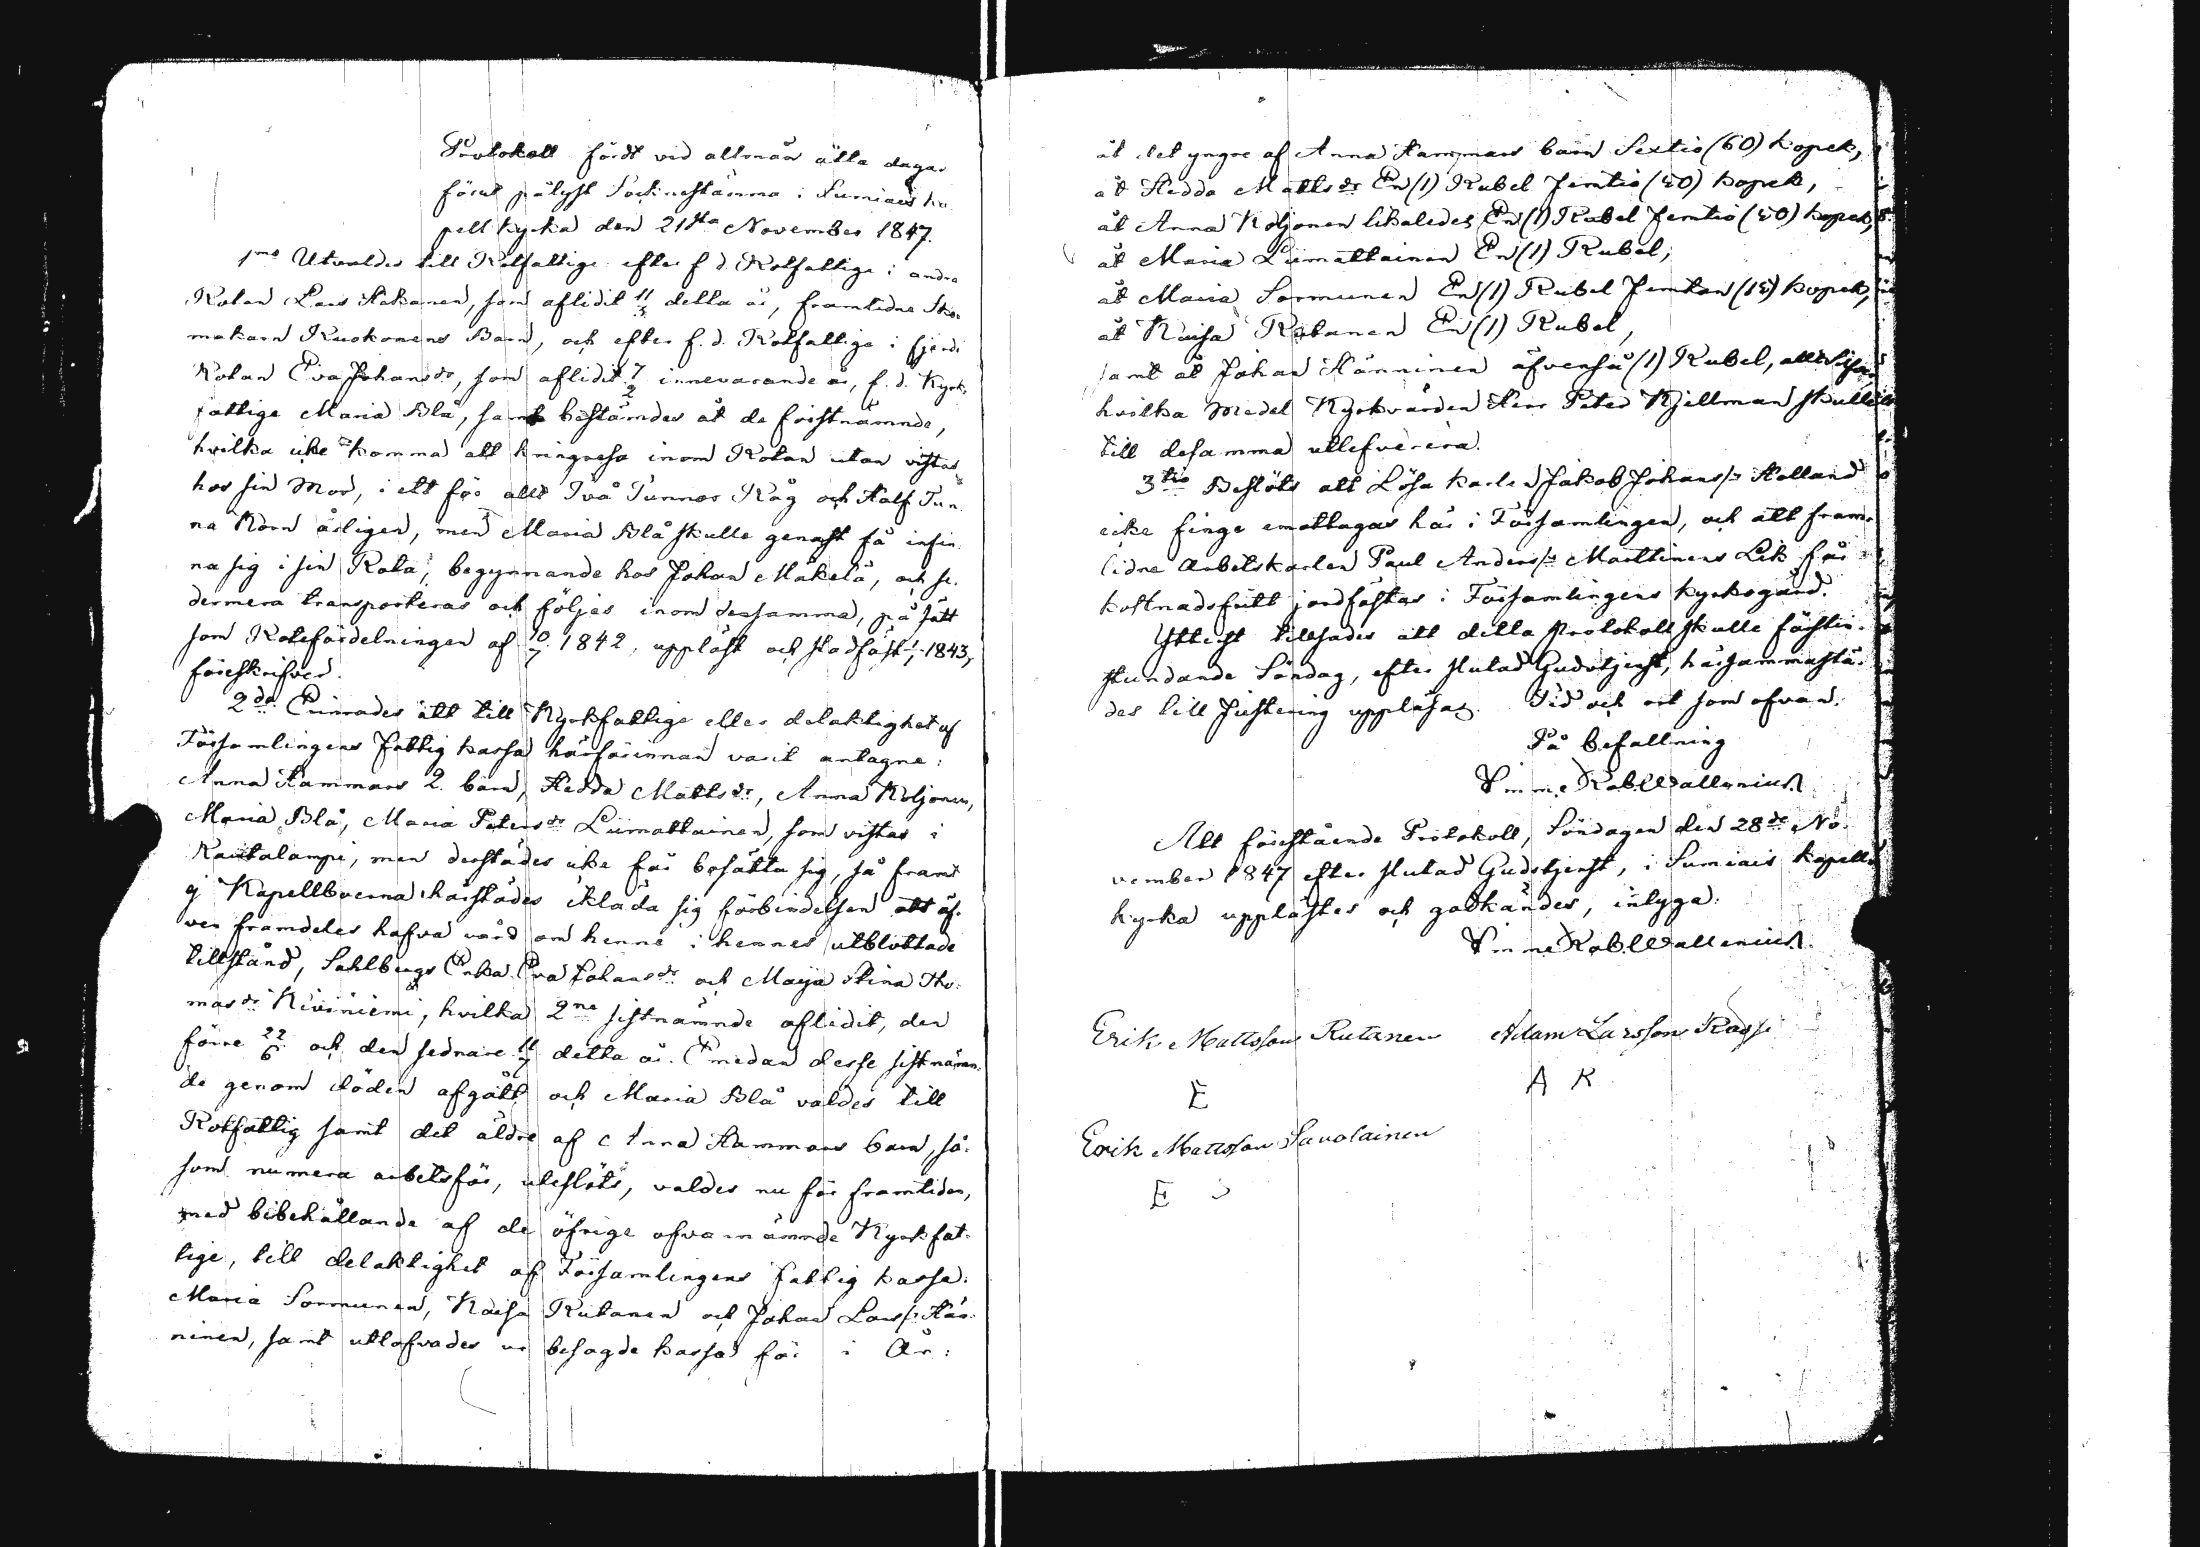 Protokoll fördt vid allmän åtta dagar
förut pålyst Sockenstämma i Sumiais ka
pell kyrka den 21sta November 1847.
1mo Utvaldes till Rotfattige efter f d. Rotfattige i andra
Rotan Lars Hakanen, som aflidit 11/3 detta år, framlidne Sko-
makarn Ruokonens Barn, och efter f. d. Rotfattige i fjerde
Rotan Eva Johansdr, som aflidit 7/2 innevarande år, f. d. Kyrk-
fattige Maria Blå, samt bestämdes åt de förstnämnde,
hvilka icke komma att kringresa inom Rotan utan vistas
hos sin Mor, i ett för allt Två Tunnor Råg och Half Tun-
na Korn årligen, men Maria Blå skulle genast få infin-
na sig i sin Rota, begynnande hos Johan Mäkelä, och se-
dermera transporteras och följas inom densamma, på sätt
som Rotefördelningen af 10/7 1842, uppläst och stadfäst 1/1 1843,
föreskrifver.
2do Enades att till Kyrkfattige eller delaktighet af
Församlingens fattig kassa härförinnan varit antagne:
Anna Hammars 2. barn, Hedda Mattsdr, Anna Koljonen,
Maria Blå, Maria Petersdr Liimattainen, som vistas i
Rautalampi, men derstädes icke får besätta sig, så framt
ej Kapellboerna härstädes ikläda sig förbindelsen att äf-
ven framdeles hafva vård om henne i hennes utblottade
tillstånd, Sahlbergs Enka Eva Johansdr och Maja Stina Tho-
masdr Kiviniemi, hvilka 2ne sistnämnde aflidit, den
förre 22/6 och den sednare 11/7 detta år. Emedan desse sistnämn-
de genom döden afgått och Maria Blå valdes till
Rotfattig samt det äldre af Anna Hammars barn, så-
som numera arbetsför, uteslöts, valdes nu för framtiden,
med bibehållande af de öfrige ofvannämnde Kyrkfat-
tige, till delaktighet af Församlingens fattig kassa:
Maria Sormunen, Kaisa Rutanen och Johan Larss: Hän-
ninen, samt utlofvades ur besagde kassa för i År:
åt det yngre af Anna Hammars barn Sextio (60) kopek,
åt Hedda Mattsdr En (1) Rubel femtio (50) kopek,
åt Anna Koljonen likaledes En (1) Rubel femtio (50) kopek,
åt Maria Liimattainen En (1) Rubel,
åt Maria Sormunen En (1) Rubel femton (15) kopek,
åt Kaisa Rutanen En (1) Rubel,
samt åt Johan Hänninen äfvenså (1) Rubel, allt Silfver
hvilka medel Kyrkvärden Herr Peter Kjellman skulle
till desamma utlefverera.
3tio Beslöts att Lösa karlen Jakob Johanss: Holland
icke finge emottagas här i Församlingen, och att fram-
lidne Arbetskarlen Paul Anderss: Marttinens Lik får
kostnadsfritt jordfästas i Församlingens kyrkogård.
Ytterst tillsades att detta Protokoll skulle först in-
stundande Söndag, efter slutad Gudstjenst, härsammastä-
des till Justering uppläsas. Tid och ort som ofvan.
På befallning
Vimme Rob. Wallenius.
Att förestående Protokoll, Söndagen den 28de No-
vember 1847 efter slutad Gudstjenst, i Sumiais kapells
kyrka upplästes och godkändes, intyga:
Vimme Rob. Wallenius.
Erik Mattsson Rutanen Adam Larsson Kossi
E A K
Erik Mattsson Savolainen
E S